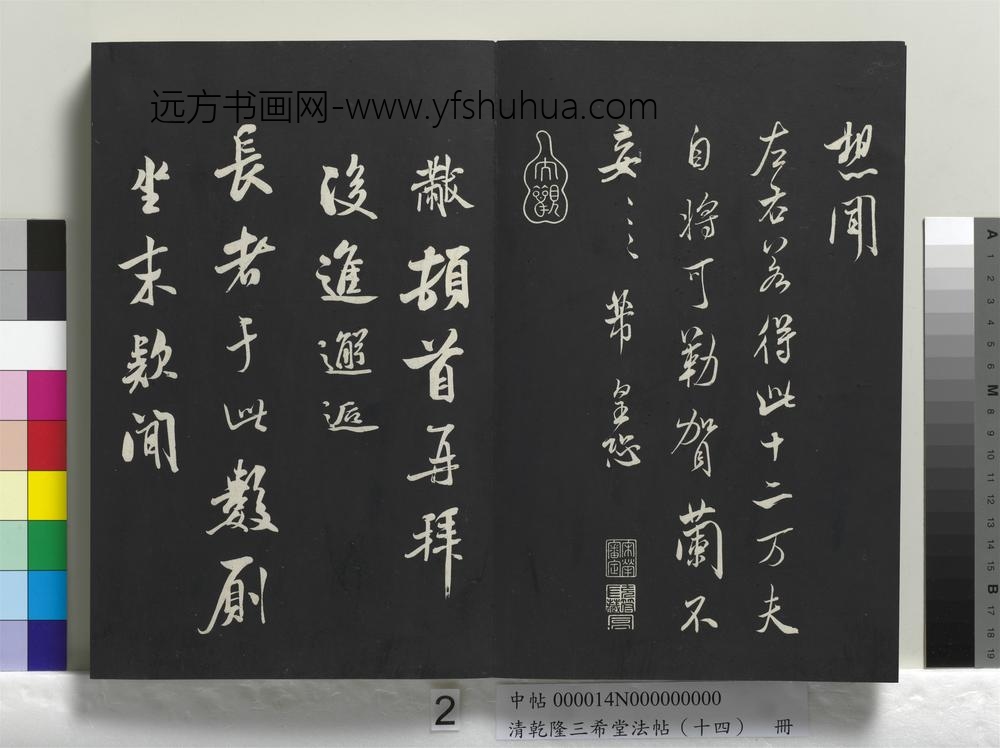 远方书画网-www.yfshuhua.com
想聞
左右若得此十二万夫
自将可勒賀蘭不
妄〻〻芾皇恐
大觀
黻頓首再拜
後進邂逅
長者于此數厠
坐末欵闻
2
中帖 000014N000000000
清乾隆三希堂法帖（十四） 冊
A
1
2
3
4
5
6
M
8
9
10
11
12
13
14
15
B
17
18
19